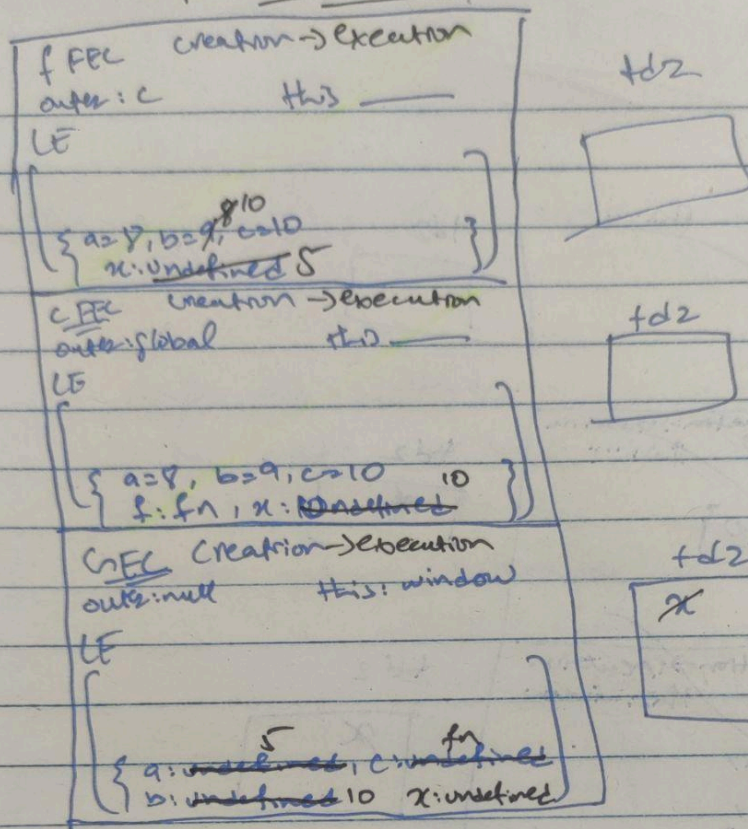 f FEC creation → execution
outer: c this ____
tdz
LE
8 10
{ a=8, b=9, c=10 }
x: undefined 5
c FEC creation → execution
outer: global this ____
tdz
LE
{ a=8, b=9, c=10 10 }
f: fn, x: undefined
GEC Creation → execution
outer: null this: window
tdz
x
LE
5 fn
{ a: undefined, c: undefined
b: undefined 10 x: undefined }